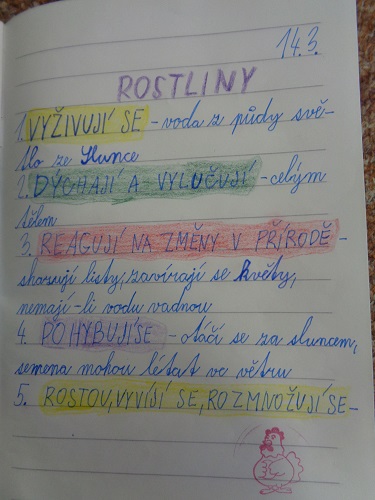 14.3.
ROSTLINY
1. VYŽIVUJÍ SE - voda z půdy svě-
tlo ze Slunce
2. DÝCHAJÍ A VYLUČUJÍ - celým
tělem
3. REAGUJÍ NA ZMĚNY V PŘÍRODĚ -
shazují listy, zavírají se květy,
nemají-li vodu vadnou
4. POHYBUJÍ SE - otáčí se za sluncem,
semena mohou létat ve větru
5. ROSTOU, VYVÍJÍ SE, ROZMNOŽUJÍ SE -